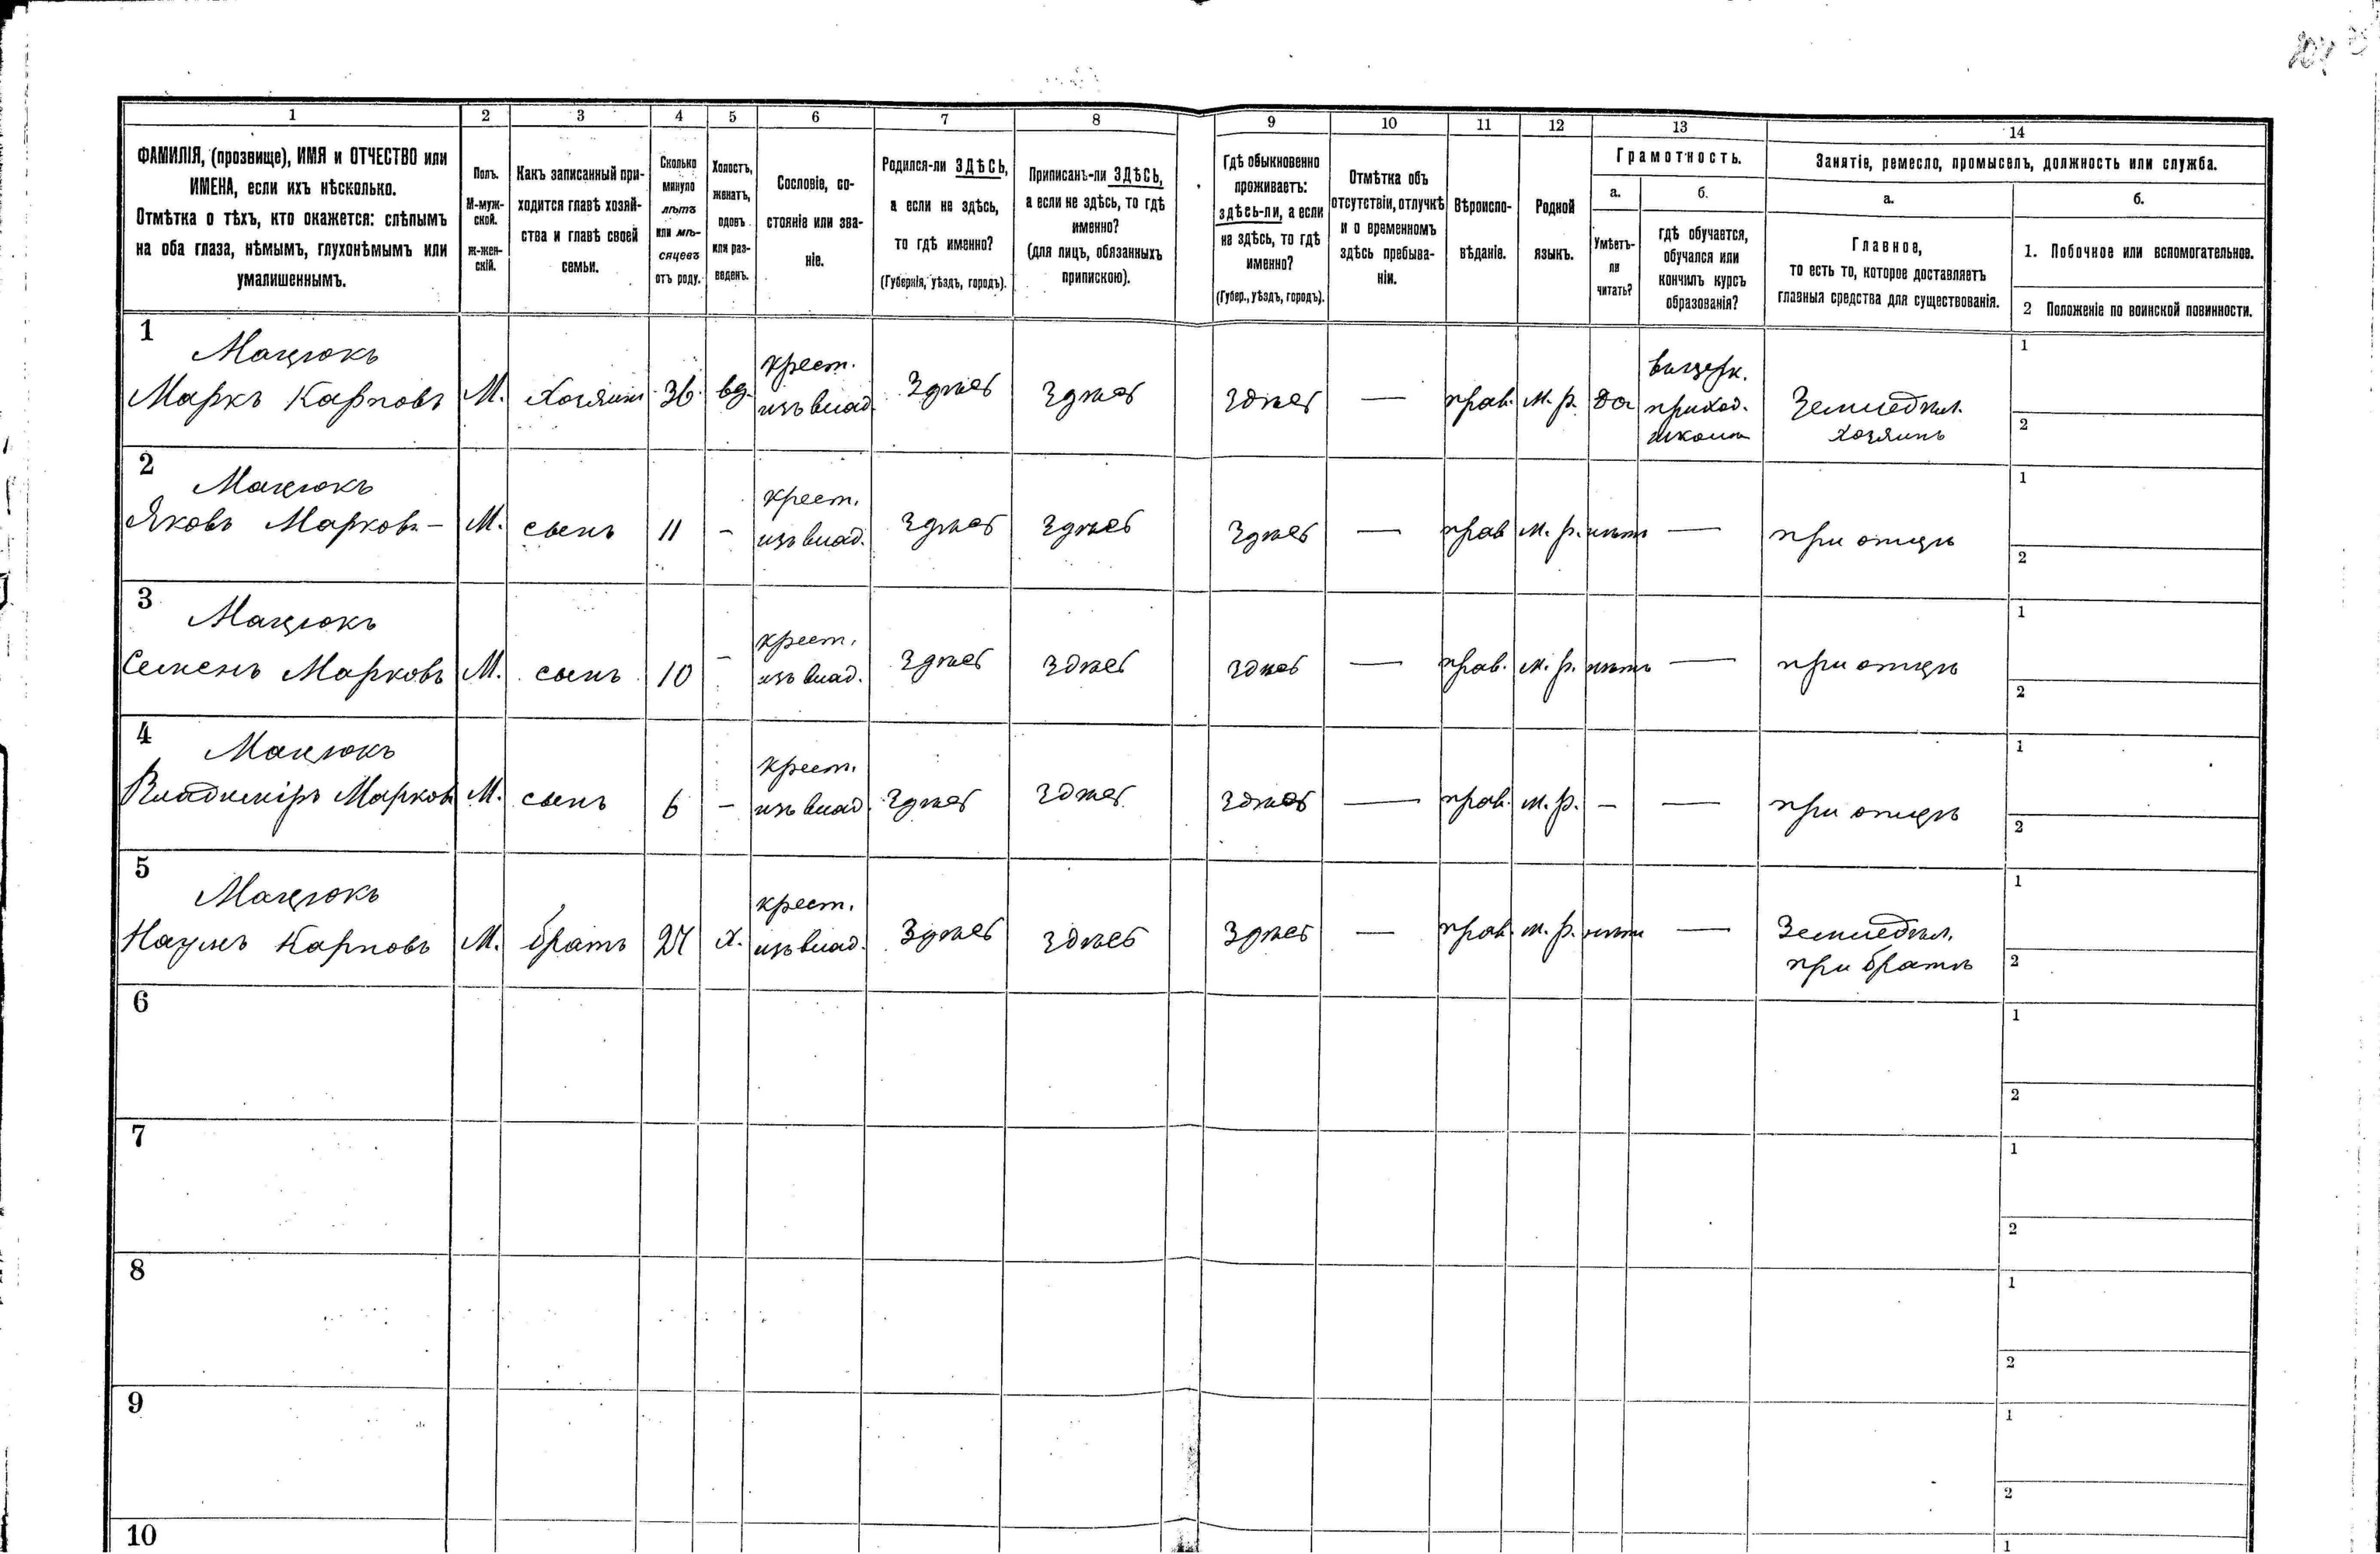 1 2 3 4 5 6 7 8 9 10 11 12 13 14
ФАМИЛІЯ, (прозвище), ИМЯ и ОТЧЕСТВО или
ИМЕНА, если ихъ нѣсколько.
Отмѣтка о тѣхъ, кто окажется: слѣпымъ
на оба глаза, нѣмымъ, глухонѣмымъ или
умалишеннымъ.
Полъ.
М-муж-
ской.
ж-жен-
скій.
Какъ записанный при-
ходится главѣ хозяй-
ства и главѣ своей
семьи.
Сколько
минуло
лѣтъ
или мѣ-
сяцевъ
отъ роду.
Холостъ,
женатъ,
вдовъ
или раз-
веденъ.
Сословіе, со-
стояніе или зва-
ніе.
Родился-ли ЗДѢСЬ,
а если не здѣсь,
то гдѣ именно?
(Губернія, уѣздъ, городъ).
Приписанъ-ли ЗДѢСЬ,
а если не здѣсь, то гдѣ
именно?
(для лицъ, обязанныхъ
припискою).
Гдѣ обыкновенно
проживаетъ:
здѣсь-ли, а если
не здѣсь, то гдѣ
именно?
(Губер., уѣздъ, городъ).
Отмѣтка объ
отсутствіи, отлучкѣ
и о временномъ
здѣсь пребыва-
ніи.
Вѣроиспо-
вѣданіе.
Родной
языкъ.
Грамотность.
а.
Умѣетъ-
ли
читать?
б.
гдѣ обучается,
обучался или
кончилъ курсъ
образованія?
Занятіе, ремесло, промыселъ, должность или служба.
а.
Главное,
то есть то, которое доставляетъ
главныя средства для существованія.
б.
1. Побочное или вспомогательное.
2 Положеніе по воинской повинности.
1
Мацюкъ
Маркъ Карповъ М. Хозяинъ 36 вд.
крест.
изъ влад.
Здѣсь Здѣсь Здѣсь — прав. м. р. да
въ церк.
приход.
школѣ
Земледѣл.
хозяинъ
1
2
2
Мацюкъ
Яковъ Марковъ — М. сынъ 11 -
крест.
изъ влад.
Здѣсь Здѣсь Здѣсь — прав м. р. нѣтъ — при отцѣ
1
2
3
Мацюкъ
Семенъ Марковъ М. сынъ 10 -
крест.
изъ влад.
Здѣсь Здѣсь здѣсь — прав. м. р. нѣтъ — при отцѣ
1
2
4
Мацюкъ
Владиміръ Марковъ М. сынъ 6 -
крест.
изъ влад.
Здѣсь Здѣсь Здѣсь — прав. м. р. - — при отцѣ
1
2
5
Мацюкъ
Наумъ Карповъ М. братъ 27 х.
крест.
изъ влад.
Здѣсь Здѣсь Здѣсь — прав. м. р. нѣтъ — Земледѣл.
при братѣ
1
2
6
1
2
7
1
2
8
1
2
9
1
2
10
1